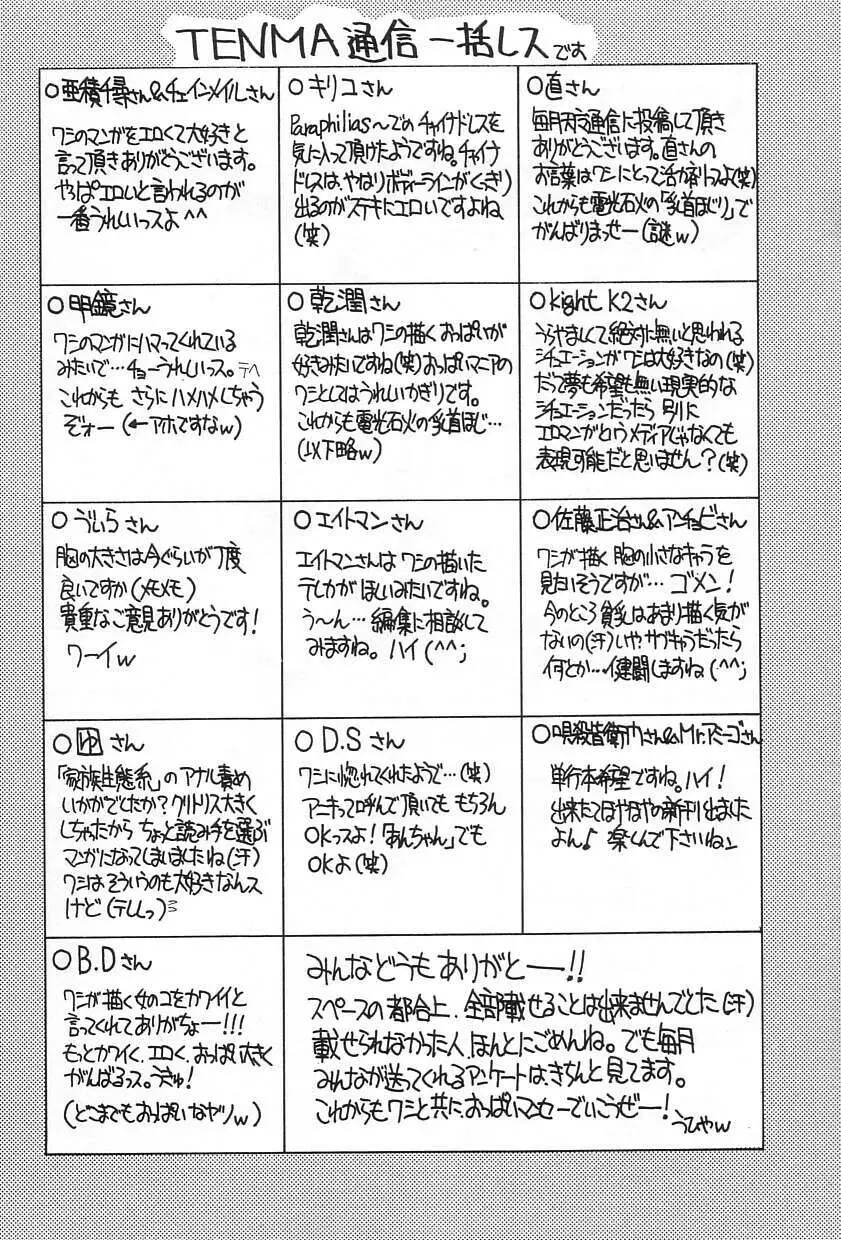 TENMA通信一括レスです
○亜積千尋さん&チェインメイルさん
ワシのマンガをエロくて大好きと
言って頂きありがとうございます。
やぱエロいと言われるのが
一番うれしいっスよ^^
○キリコさん
Paraphilias~でのチャイナドレスを
気に入って頂けたようですね。チャイナ
ドレスは、やはりボディーラインがくっきり
出るのがステキにエロいですよね
(笑)
○直さん
毎月天守通信に投稿して頂き
ありがとうございます。直さんの
お言葉はワシにとって活力剤っスよ(笑)
これからも電光石火の「乳首ほじり」で
がんばりまっせー(謎w)
○明鏡さん
ワシのマンガにハマってくれている
みたいで…チョーうれしいっス。テヘ
これからも さらにハメハメしちゃう
ぞォー(←アホですなw)
○乾潤さん
乾潤さんはワシの描くおっぱいが
好きみたいですね(笑)おっぱいマニアの
ワシとしてはうれしいかぎりです。
これからも電光石火の乳首ほじ…
(以下略w)
○kight K2さん
うらやましくて絶対に無いと思われる
シチュエーションがワシは大好きなの(笑)
だって夢も希望も無い現実的な
シチュエーションだったら 別に
エロマンガというメディアじゃなくても
表現可能だと思いません?(笑)
○うぃらさん
胸の大きさは今ぐらいが丁度
良いですか(メモメモ)
貴重なご意見ありがとうです!
ワーイw
○エイトマンさん
エイトマンさんは ワシの描いた
テレカがほしいみたいですね。
う~ん…編集に相談して
みますね。ハイ(^^;
○佐藤正治さん&アンチョビさん
ワシが描く胸の小さなキャラを
見たいそうですが… ゴメン!
今のところ貧乳はあまり描く気が
ないの(汗)いや、サブキャラだったら
何とか…健闘しますね(^^;
○ゆさん
「家族生態系」のアナル責め
いかがでしたか?クリトリス大きく
しちゃたから ちょっと読み手を選ぶ
マンガになってしまいましたね(汗)
ワシはそういうのも大好きなんス
けど(テレっ)
○D.Sさん
ワシに惚れてくれたようで…(笑)
アニキって呼んで頂いても もちろん
OKっスよ!「あんちゃん」でも
OKよ(笑)
○呪殺皆衛門さん&Mr.アミーゴさん
単行本希望ですね。ハイ!
出来たてほやほやの新刊出ました
よん♪ 楽しんで下さいね」
○B.Dさん
ワシが描く女のコをカワイイと
言ってくれてありがちょー!!!
もっとカワイく、エロく、おっぱい大きく
がんばるっス。うきゅ!
(どこまでもおっぱいなヤツw)
みんなどうもありがとー!!
スペースの都合上、全部載せることは出来ませんでした(汗)
載せられなかった人、ほんとにごめんね。でも毎月
みんなが送ってくれるアンケートは、きちんと見てます。
これからもワシと共におっぱいマンセーでいこうぜー!
うひゃw